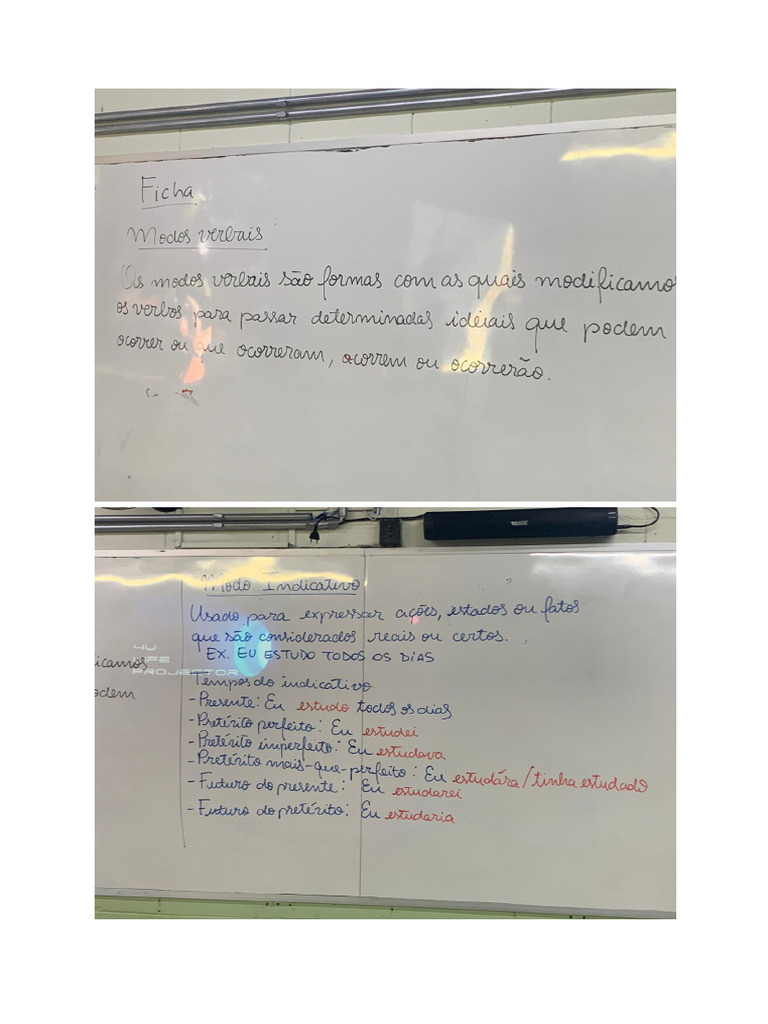 Ficha
Modos verbais
Os modos verbais são formas com as quais modificamo
os verbos para passar determinadas idéiais que podem
ocorrer ou que ocorreram, ocorrem ou ocorrerão.
Modo Indicativo
Usado para expressar ações, estados ou fatos
que são considerados reais ou certos.
EX. EU ESTUDO TODOS OS DIAS
Tempos do indicativo
- Presente: Eu estudo todos os dias
- Pretérito perfeito: Eu estudei
- Pretérito imperfeito: Eu estudava
- Pretérito mais-que-perfeito: Eu estudára/tinha estudado
- Futuro do presente: Eu estudarei
- Futuro do pretérito: Eu estudaria
icamos
odem
4U
LIFE
PROJECTOR